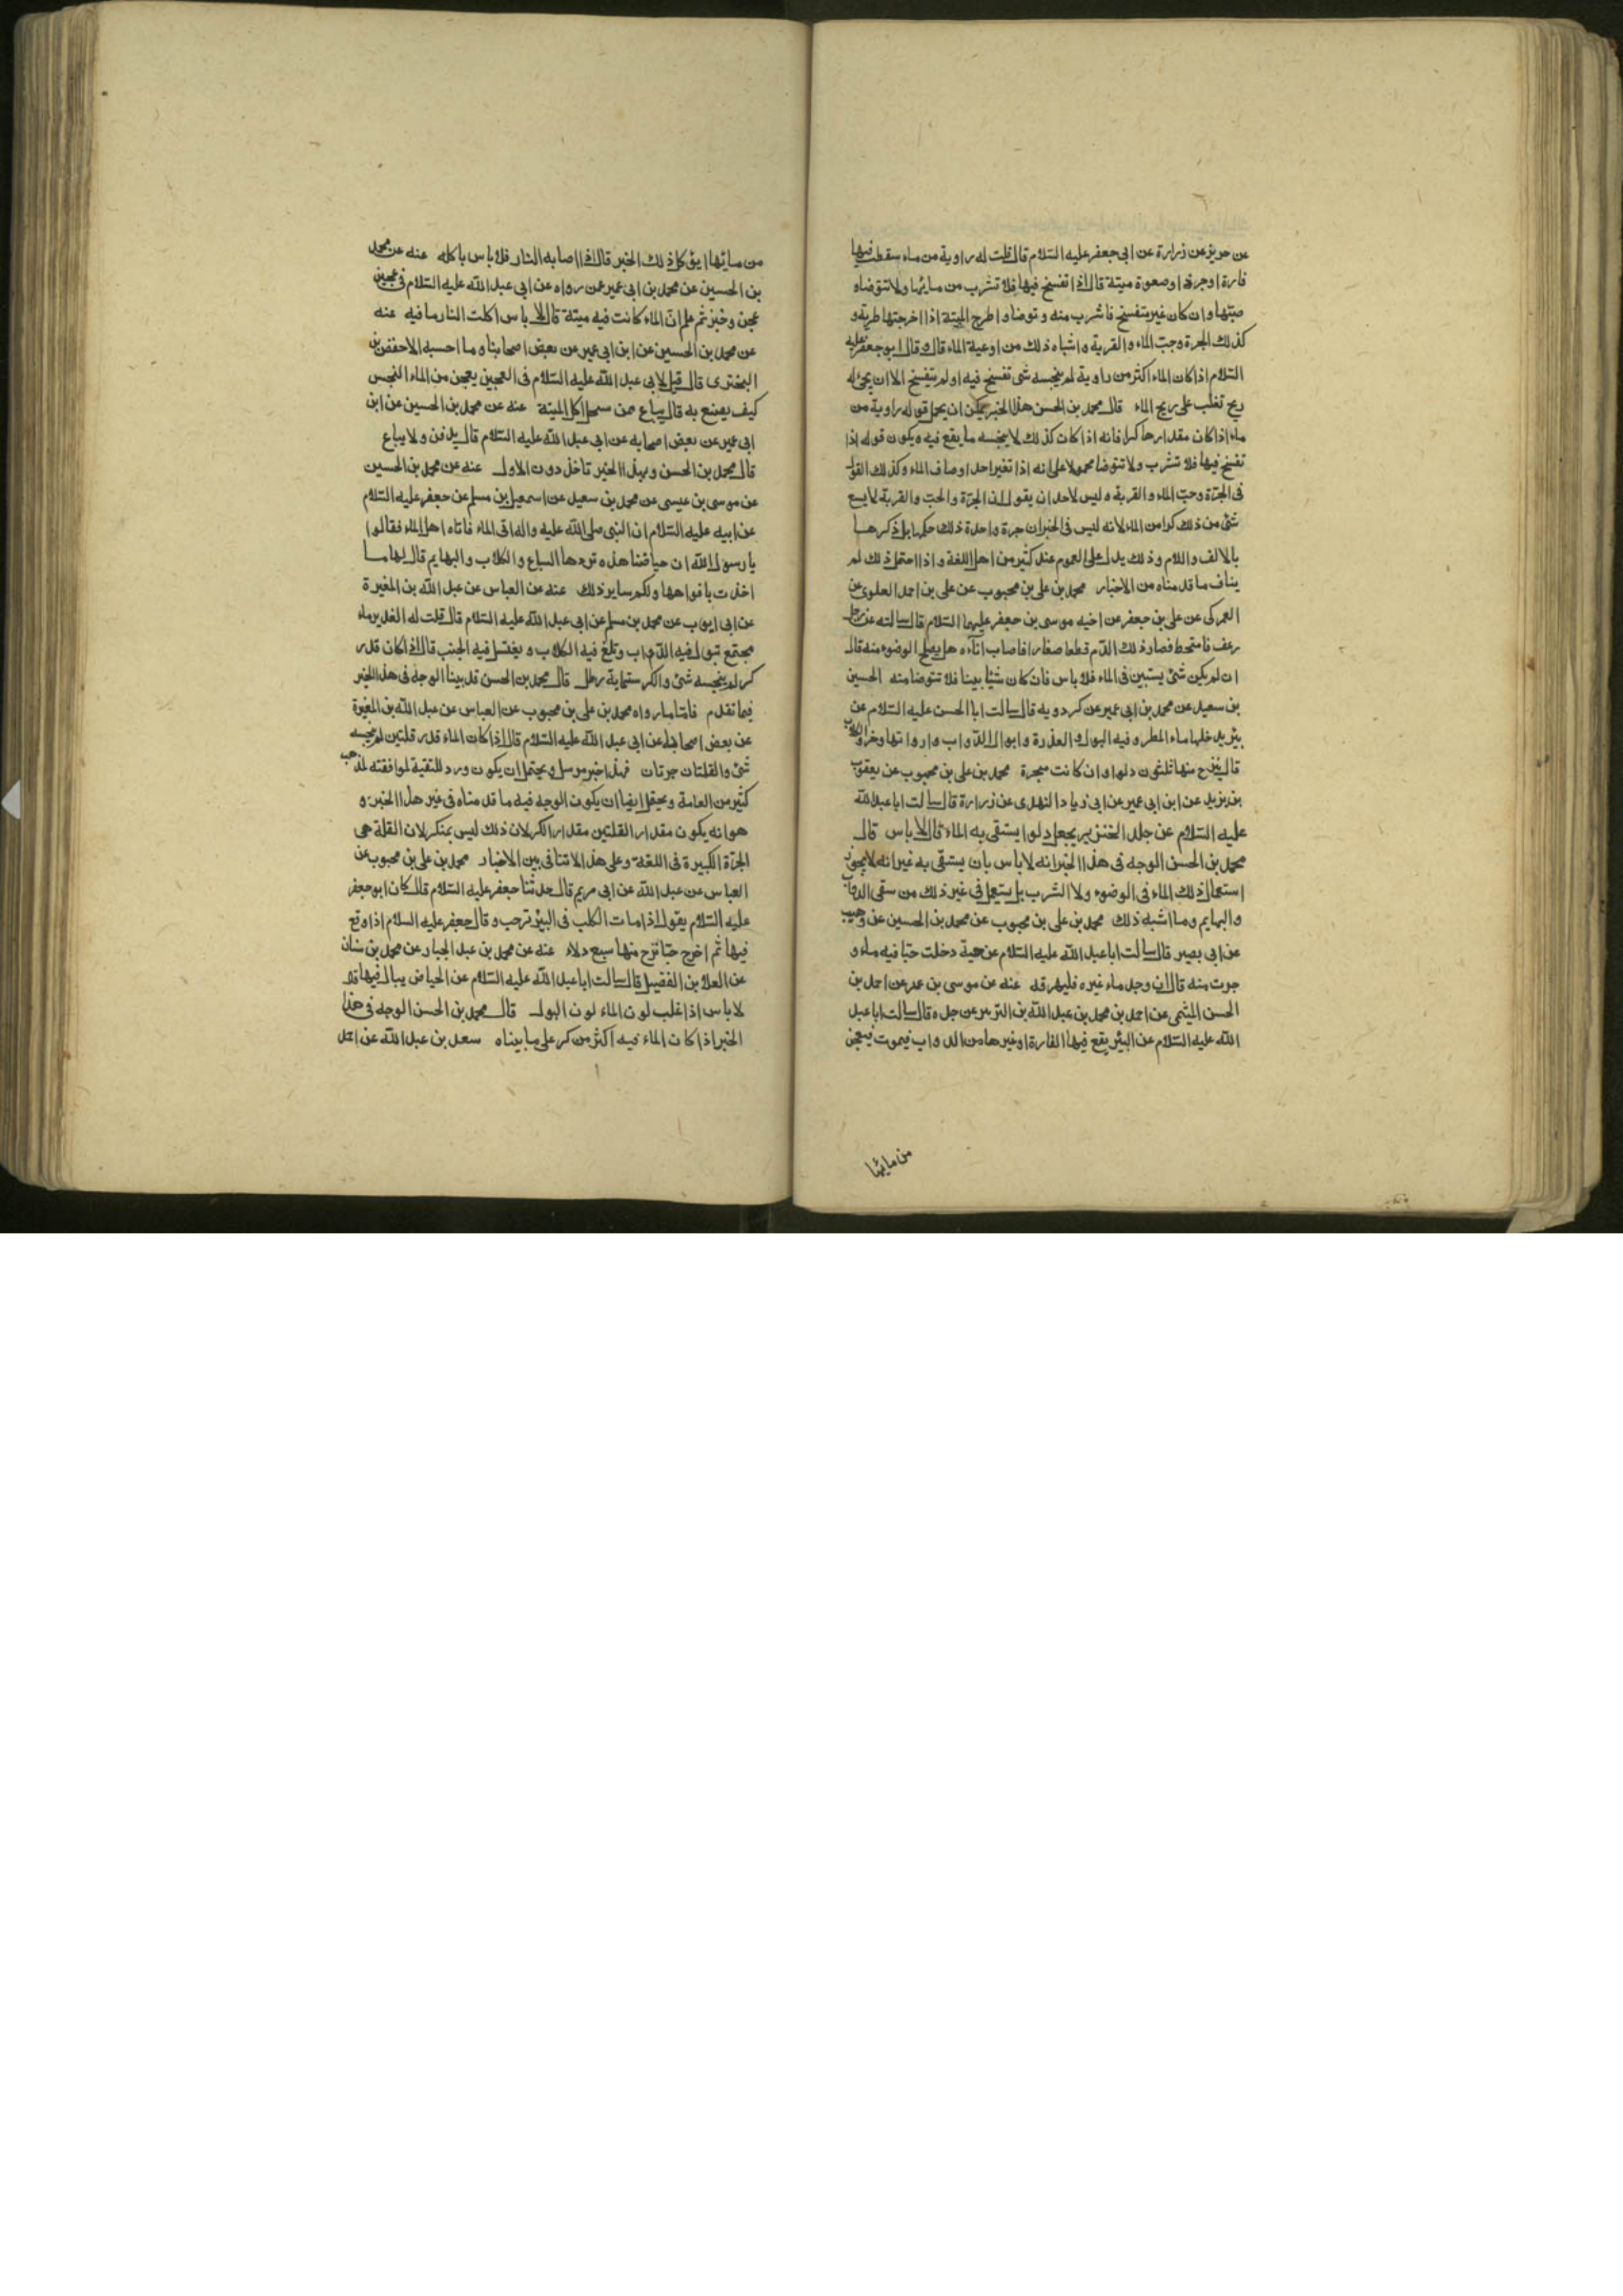 عن حريز عن زرارة عن ابى جعفر عليه السّلام قال قلت له راوية من ماء سقطت فيها
فارة او جرذ او صعوة ميتة قال اذا تفسخ فيها فلا تشرب من مائها ولا تتوضاء و
صبّها وان كان غير متفسخ فاشرب منه وتوضا واطرح الميتة اذا اخرجتها طرية و
كذلك الجرة وحبّ الماء والقربة واشباه ذلك من اوعية الماء قال وقال ابو جعفر عليه
السّلام اذا كان الماء اكثر من راوية لم ينجسه شئ تفسخ فيه او لم يتفسخ الا ان يجئ له
ريح تغلب على ريح الماء قال محمد بن الحسن هذا الخبر يمكن ان يحمل قوله راوية من
ماء اذا كان مقدارها كرا فانه اذا كان كذلك لا ينجسه ما يقع فيه ويكون قوله اذا
تفسخ فيها فلا تشرب ولا تتوضا محمولا على انه اذا تغير احد اوصاف الماء وكذلك القول
فى الجرّة وحبّ الماء والقربة وليس لاحد ان يقول ان الجرّة والحبّ والقربة لا يسع
شئ من ذلك كرا من الماء لانه ليس فى الخبر ان جرة واحدة ذلك حكمها بل ذكرها
بالالف واللام وذلك يدل على العموم عند كثير من اهل اللغة واذا احتمل ذلك لم
يناف ما قدمناه من الاخبار محمد بن على بن محبوب عن على بن احمد العلوى عن
العمركى عن على بن جعفر عن اخيه موسى بن جعفر عليهما السّلام قال سالته عن رجل
رعف فامتخط فصار ذلك الدّم قطعا صغارا فاصاب اناءه هل يصلح الوضوء منه قال
ان لم يكن شئ يستبين فى الماء فلا باس فان كان شيئا بينا فلا تتوضا منه الحسين
بن سعيد عن محمد بن ابى عمير عن كردويه قال سالت ابا الحسن عليه السّلام عن
بئر يدخلها ماء المطر وفيه البول والعذرة وابوال الدّواب واروائها وخرؤ الكلاب
قال ينزح منها ثلثون دلوا وان كانت مبخرة محمد بن على بن محبوب عن يعقوب
بن يزيد عن ابن ابى عمير عن ابى زياد النهدى عن زرارة قال سالت ابا عبد الله
عليه السّلام عن جلد الخنزير يجعل دلوا يستقى به الماء قال لا باس قال
محمد بن الحسن الوجه فى هذا الخبر انه لا باس بان يستقى به غير انه لا يجوز
استعمال ذلك الماء فى الوضوء ولا الشرب بل يستعمل فى غير ذلك من سقى الدواب
والبهايم وما اشبه ذلك محمد بن على بن محبوب عن محمد بن الحسين عن وهيب
عن ابى بصير قال سالت ابا عبد الله عليه السّلام عن حية دخلت حبّا فيه ماء و
خرجت منه قال ان وجد ماء غيره فليهرقه عنه عن موسى بن عمر عن احمد بن
الحسن الميثمى عن احمد بن محمد بن عبد الله بن الزبير عن جده قال سالت ابا عبد
الله عليه السّلام عن البئر يقع فيها الفارة او غيرها من الدواب فيموت فيعجن
من مائها
من مائها ايؤكل ذلك الخبز قال اذا اصابه النار فلا باس باكله عنه عن محمد
بن الحسين عن محمد بن ابى عمير عمن رواه عن ابى عبد الله عليه السّلام فى عجين
عجن وخبز ثم علم انّ الماء كانت فيه ميتة قال لا باس اكلت النار ما فيه عنه
عن محمد بن الحسين عن ابن ابى عمير عن بعض اصحابنا وما احسبه الا حفص بن
البخترى قال قيل لابى عبد الله عليه السّلام فى العجين يعجن من الماء النجس
كيف يصنع به قال يباع ممن يستحل اكل الميتة عنه عن محمد بن الحسين عن ابن
ابى عمير عن بعض اصحابه عن ابى عبد الله عليه السّلام قال يدفن ولا يباع
قال محمد بن الحسن وبهذا الخبر ناخذ دون الاول عنه عن محمد بن الحسين
عن موسى بن عيسى عن محمد بن سعيد عن اسمعيل بن مسلم عن جعفر عليه السّلام
عن ابيه عليه السّلام ان النبى صلى الله عليه واله اتى الماء فاتاه اهل الماء فقالوا
يا رسول الله ان حياضنا هذه تردها السباع والكلاب والبهايم قال لها ما
اخذت بافواهها ولكم ساير ذلك عنه عن العباس عن عبد الله بن المغيرة
عن ابى ايوب عن محمد بن مسلم عن ابى عبد الله عليه السّلام قال قلت له الغدير ماء
مجتمع تبول فيه الدّواب وتلغ فيه الكلاب ويغتسل فيه الجنب قال اذا كان قدر
كر لم ينجسه شئ والكر ستماية رطل قال محمد بن الحسن قد بينا الوجه فى هذا الخبر
فيما تقدم فامّا ما رواه محمد بن على بن محبوب عن العباس عن عبد الله بن المغيرة
عن بعض اصحابه عن ابى عبد الله عليه السّلام قال اذا كان الماء قدر قلتين لم ينجسه
شئ والقلتان جرتان فهذا خبر مرسل ويحتمل ان يكون ورد للتقية لموافقته لمذهب
كثير من العامة ويحتمل ايضا ان يكون الوجه فيه ما قدمناه فى غير هذا الخبر و
هو انه يكون مقدار القلتين مقدار الكر لان ذلك ليس بمنكر لان القلة هى
الجرّة الكبيرة فى اللغة وعلى هذا لا تنافى بين الاخبار محمد بن على بن محبوب عن
العباس عن عبد الله عن ابى مريم قال حدثنا جعفر عليه السّلام قال كان ابو جعفر
عليه السّلام يقول اذا مات الكلب فى البئر نزحت وقال جعفر عليه السلام اذا وقع
فيها ثم اخرج حيّا نزح منها سبع دلاء عنه عن محمد بن عبد الجبار عن محمد بن سنان
عن العلا بن الفضيل قال سالت ابا عبد الله عليه السّلام عن الحياض يبال فيها قال
لا باس اذا غلب لون الماء لون البول قال محمد بن الحسن الوجه فى هذا
الخبر اذا كان الماء فيه اكثر من كر على ما بيناه سعد بن عبد الله عن احمد